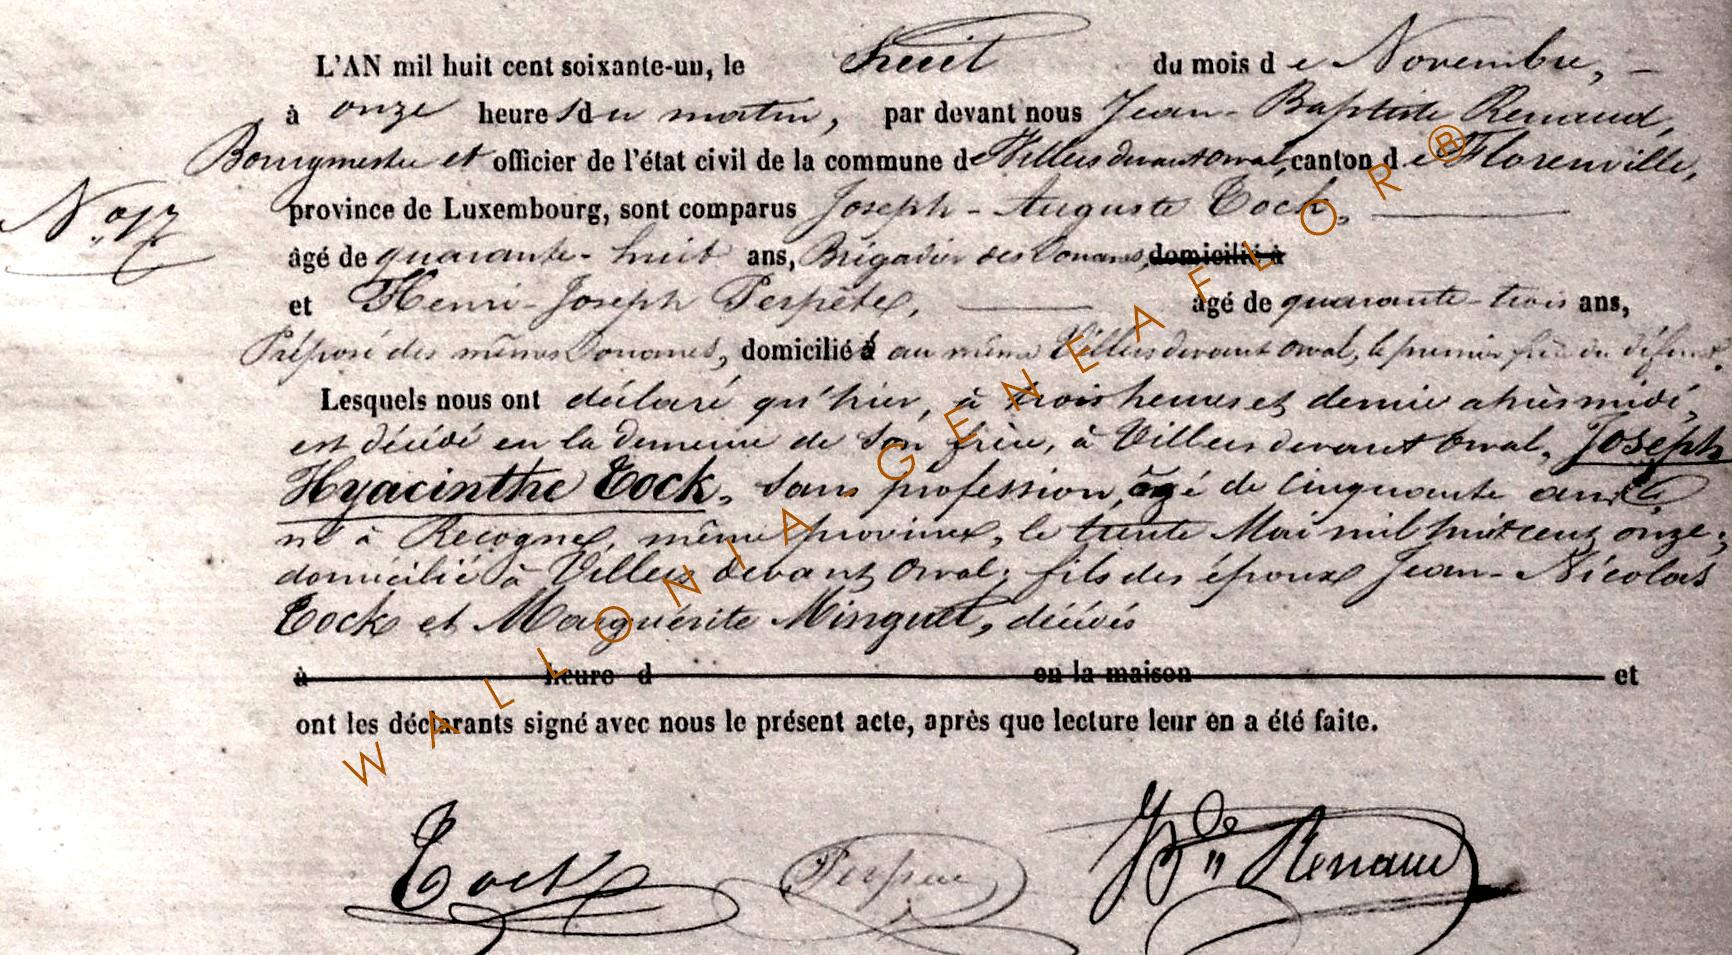 L'AN mil huit cent soixante-un, le huit du mois de Novembre,
à onze heures du matin, par devant nous Jean-Baptiste Renaud,
Bourgmestre et officier de l'état civil de la commune de Villers devant Orval, canton de Florenville,
N° 17
province de Luxembourg, sont comparus Joseph-Auguste Tock,
âgé de quarante-huit ans, Brigadier des Douanes, domicilié à
et Henri-Joseph Perpète, âgé de quarante-trois ans,
Préposé des mêmes Douanes, domicilié à au même Villers devant Orval, le premier frère du défunt.
Lesquels nous ont déclaré qu'hier, à trois heures et demie après midi,
est décédé en la demeure de son frère, à Villers devant Orval, Joseph
Hyacinthe Tock, sans profession, âgé de cinquante ans
né à Recogne, même province, le trente Mai mil huit cent onze;
domicilié à Villers devant Orval; fils des époux Jean-Nicolas
Tock et Marguérite Minguet, décédés
à heure d en la maison et
ont les déclarants signé avec nous le présent acte, après que lecture leur en a été faite.
Tock Perpète JBte Renaud
WALLONIA GENEAFLOR®